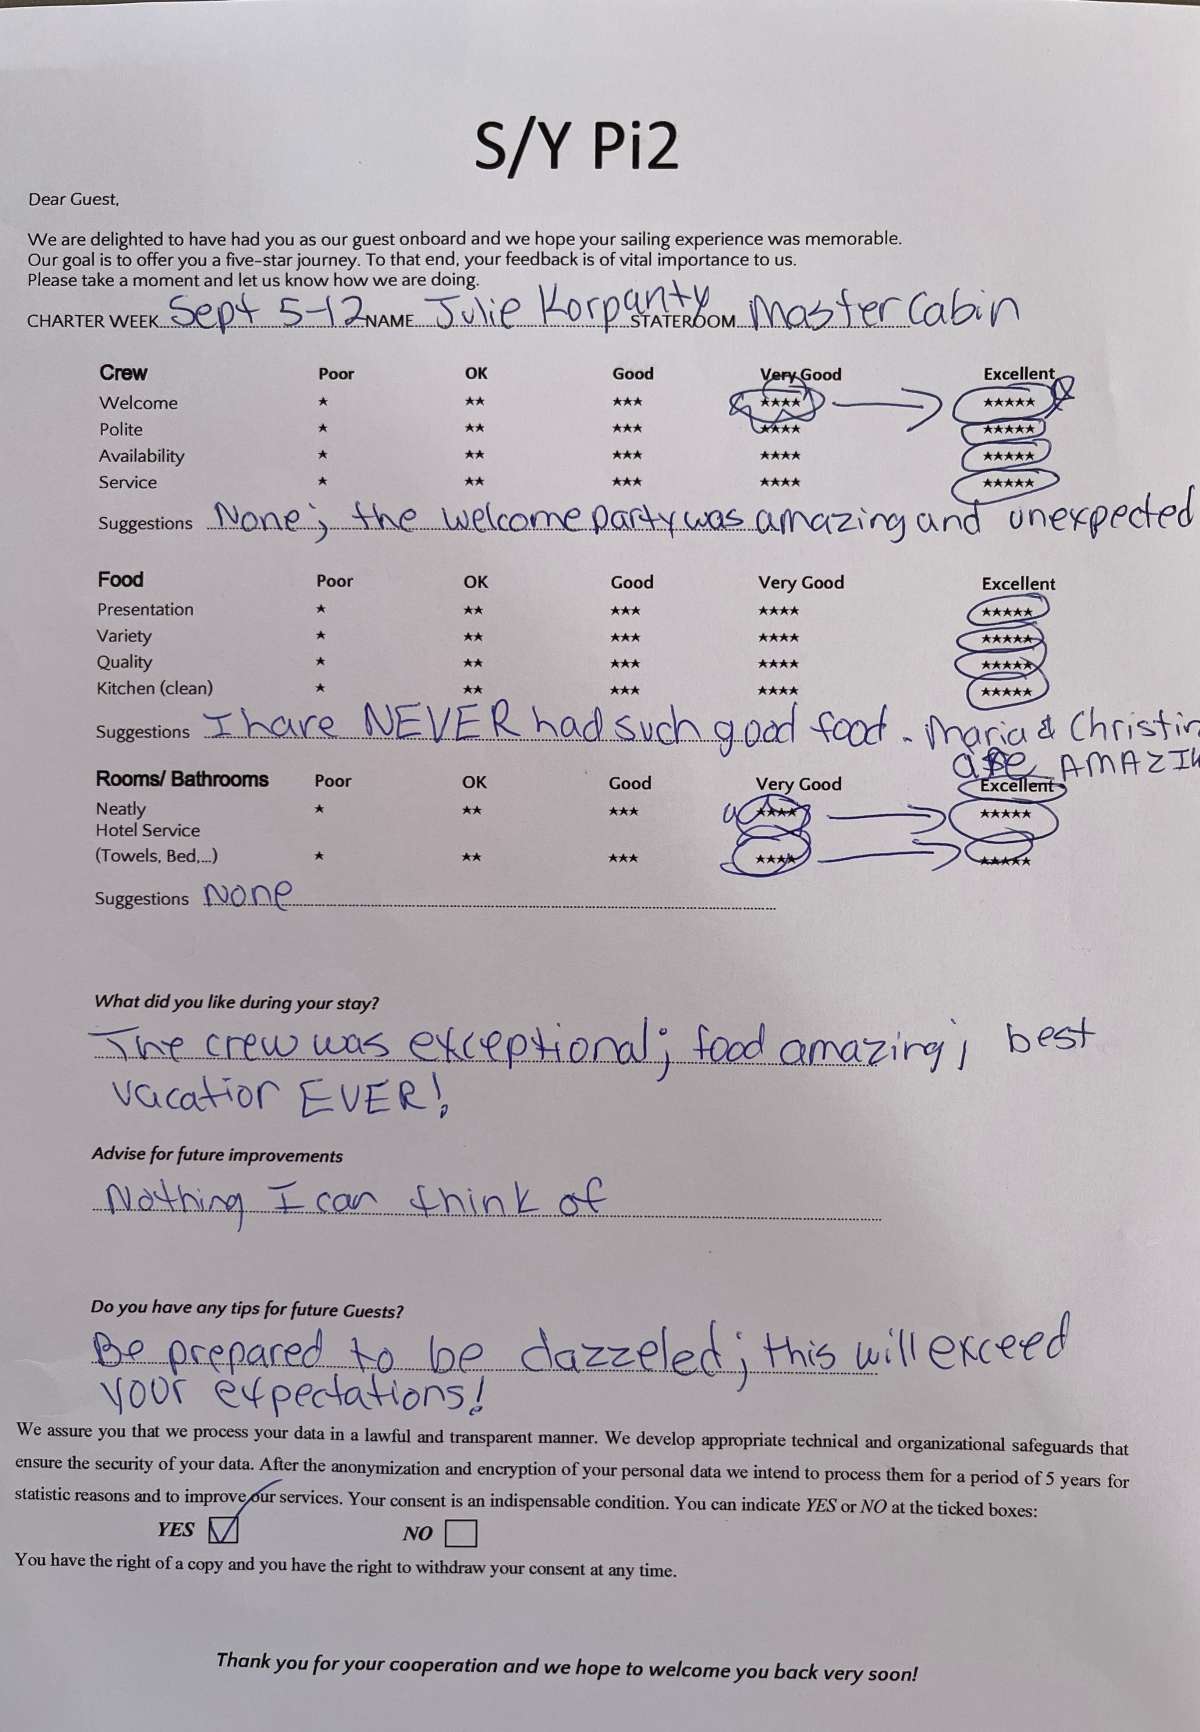 S/Y Pi2
Dear Guest,
We are delighted to have had you as our guest onboard and we hope your sailing experience was memorable.
Our goal is to offer you a five-star journey. To that end, your feedback is of vital importance to us.
Please take a moment and let us know how we are doing.
CHARTER WEEK Sept 5-12 NAME Julie Korpanty STATEROOM Master Cabin
Crew Poor OK Good Very Good Excellent
Welcome ★ ★★ ★★★ ★★★★ ★★★★★
Polite ★ ★★ ★★★ ★★★★ ★★★★★
Availability ★ ★★ ★★★ ★★★★ ★★★★★
Service ★ ★★ ★★★ ★★★★ ★★★★★
Suggestions None; the welcome party was amazing and unexpected
Food Poor OK Good Very Good Excellent
Presentation ★ ★★ ★★★ ★★★★ ★★★★★
Variety ★ ★★ ★★★ ★★★★ ★★★★★
Quality ★ ★★ ★★★ ★★★★ ★★★★★
Kitchen (clean) ★ ★★ ★★★ ★★★★ ★★★★★
Suggestions I have NEVER had such good food. Maria & Christin
are AMAZIN
Rooms/ Bathrooms Poor OK Good Very Good Excellent
Neatly ★ ★★ ★★★ ★★★★ ★★★★★
Hotel Service
(Towels, Bed,...) ★ ★★ ★★★ ★★★★ ★★★★★
Suggestions None
What did you like during your stay?
The crew was exceptional; food amazing; best
vacation EVER!
Advise for future improvements
Nothing I can think of
Do you have any tips for future Guests?
Be prepared to be dazzeled; this will exceed
your expectations!
We assure you that we process your data in a lawful and transparent manner. We develop appropriate technical and organizational safeguards that
ensure the security of your data. After the anonymization and encryption of your personal data we intend to process them for a period of 5 years for
statistic reasons and to improve our services. Your consent is an indispensable condition. You can indicate YES or NO at the ticked boxes:
YES NO
You have the right of a copy and you have the right to withdraw your consent at any time.
Thank you for your cooperation and we hope to welcome you back very soon!